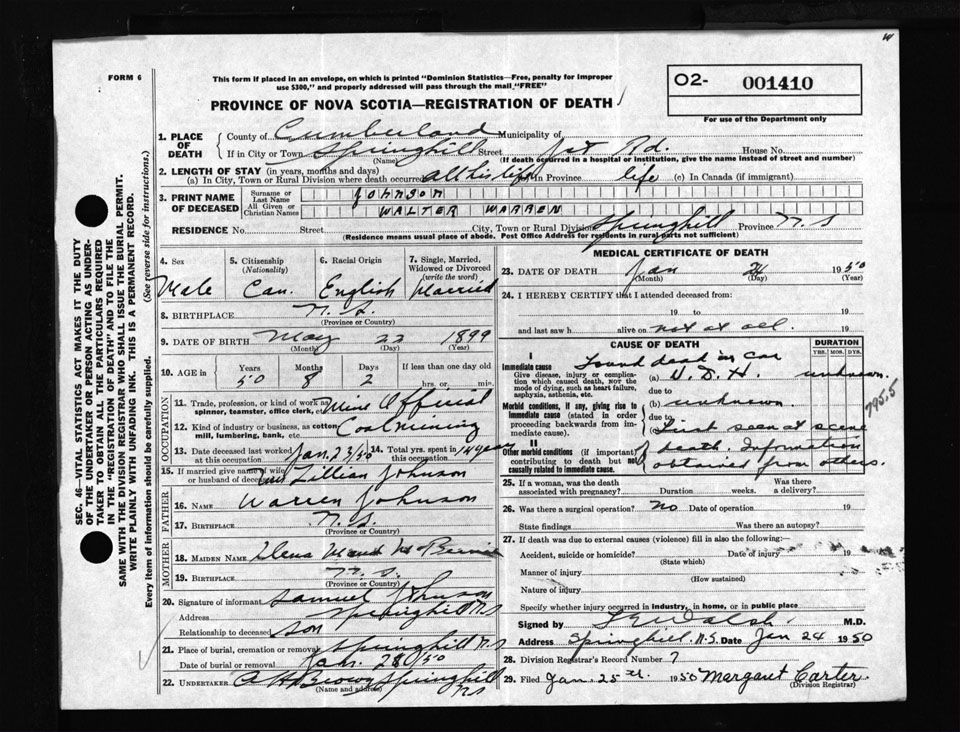 FORM 6
This form if placed in an envelope, on which is printed "Dominion Statistics—Free, penalty for improper
use $300," and properly addressed will pass through the mail "FREE"
PROVINCE OF NOVA SCOTIA—REGISTRATION OF DEATH
O2- 001410
For use of the Department only
SEC. 46—VITAL STATISTICS ACT MAKES IT THE DUTY
OF THE UNDERTAKER OR PERSON ACTING AS UNDER-
TAKER TO OBTAIN ALL THE PARTICULARS REQUIRED
IN THE "REGISTRATION OF DEATH" AND TO FILE THE
SAME WITH THE DIVISION REGISTRAR WHO SHALL ISSUE THE BURIAL PERMIT.
WRITE PLAINLY WITH UNFADING INK. THIS IS A PERMANENT RECORD.
Every item of information should be carefully supplied. (See reverse side for instructions.)
1. PLACE OF DEATH County of Cumberland Municipality of
If in City or Town Springhill Street Jct Rd. House No.
(Name) (If death occurred in a hospital or institution, give the name instead of street and number)
2. LENGTH OF STAY (in years, months and days)
(a) In City, Town or Rural Division where death occurred all his life (b) In Province life (c) In Canada (if immigrant)
3. PRINT NAME OF DECEASED Surname or Last Name Johnson
All Given or Christian Names WALTER WARREN
RESIDENCE No. Street City, Town or Rural Division Springhill Province N.S
(Residence means usual place of abode. Post Office Address for residents in rural parts not sufficient)
4. Sex Male
5. Citizenship (Nationality) Can.
6. Racial Origin English
7. Single, Married, Widowed or Divorced (write the word) Married
8. BIRTHPLACE N.S.
(Province or Country)
9. DATE OF BIRTH May 22 1899
(Month) (Day) (Year)
10. AGE in Years 50 Months 8 Days 2 If less than one day old hrs. or min.
OCCUPATION
11. Trade, profession, or kind of work as spinner, teamster, office clerk, etc. Mine Official
12. Kind of industry or business, as cotton mill, lumbering, bank, etc. Coal mining
13. Date deceased last worked at this occupation Jan. 23/50 14. Total yrs. spent in this occupation 14 years
15. If married give name of wife or husband of deceased Lillian Johnson
FATHER
16. Name Warren Johnson
17. BIRTHPLACE N.S.
(Province or Country)
MOTHER
18. MAIDEN NAME Maud
19. BIRTHPLACE N.S.
(Province or Country)
20. Signature of informant Samuel Johnson
Address Springhill NS
Relationship to deceased son
21. Place of burial, cremation or removal Springhill N.S
Date of burial or removal Jan. 28 1950
22. UNDERTAKER A H Brown Springhill NS
(Name and address)
MEDICAL CERTIFICATE OF DEATH
23. DATE OF DEATH Jan 24 1950
(Month) (Day) (Year)
24. I HEREBY CERTIFY that I attended deceased from:
19 to 19
and last saw h alive on not at all. 19
CAUSE OF DEATH DURATION
YRS. MOS. DYS.
I
Immediate cause Found dead in car
Give disease, injury or complication which caused death, NOT the mode of dying, such as heart failure, asphyxia, asthenia, etc.
(a) V. D. H. unknown.
due to
Morbid conditions, if any, giving rise to immediate cause (stated in order proceeding backwards from immediate cause).
(b) unknown.
due to
(c) First seen at scene
795.5
II
Other morbid conditions (if important) contributing to death but not causally related to immediate cause.
death. Information
obtained from others.
25. If a woman, was the death associated with pregnancy? Duration weeks. Was there a delivery?
26. Was there a surgical operation? no Date of operation 19
State findings Was there an autopsy?
27. If death was due to external causes (violence) fill in also the following:—
Accident, suicide or homicide? Date of injury 19
(State which)
Manner of injury
(How sustained)
Nature of injury
Specify whether injury occurred in industry, in home, or in public place
Signed by Walsh M.D.
Address Springhill, N.S. Date Jan 24 1950
28. Division Registrar's Record Number 7
29. Filed Jan. 25th. 1950 Margaret Carter
(Division Registrar)